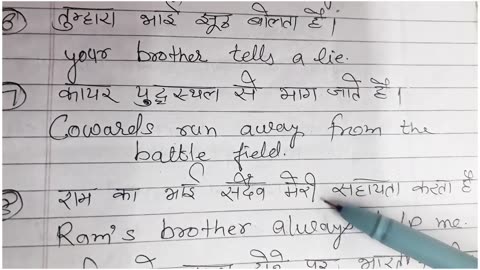 6) तुम्हारा भाई झूठ बोलता है।
your brother tells a lie.
7) कायर युद्ध स्थल से भाग जाते हैं।
Cowards run away from the
battle field.
राम का भाई सदैव मेरी सहायता करता है
Ram's brother always help me.